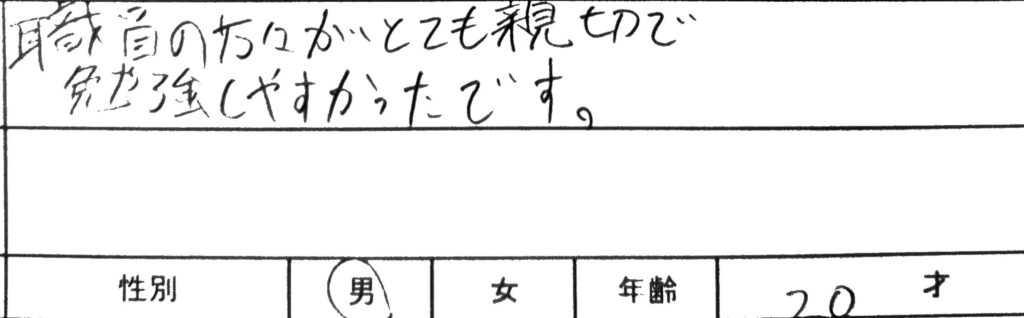 職員の方々がとても親切で
勉強しやすかったです。
性別 男 女 年齢 20 才